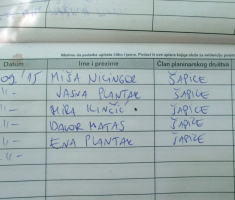 Molimo da podatke upišete čitko i jasno. Podaci iz ove knjige služe za evidenciju
Datum Ime i prezime Član planinarskog društva
09/15 MIŠA NILINGER ŠAPICE
-11- JASNA PLANTAK ŠAPICE
-11- MIRA KINČIĆ ŠAPICE
-11- DAVOR MATAS ŠAPICE
-11- ENA PLANTAK ŠAPICE
-11-